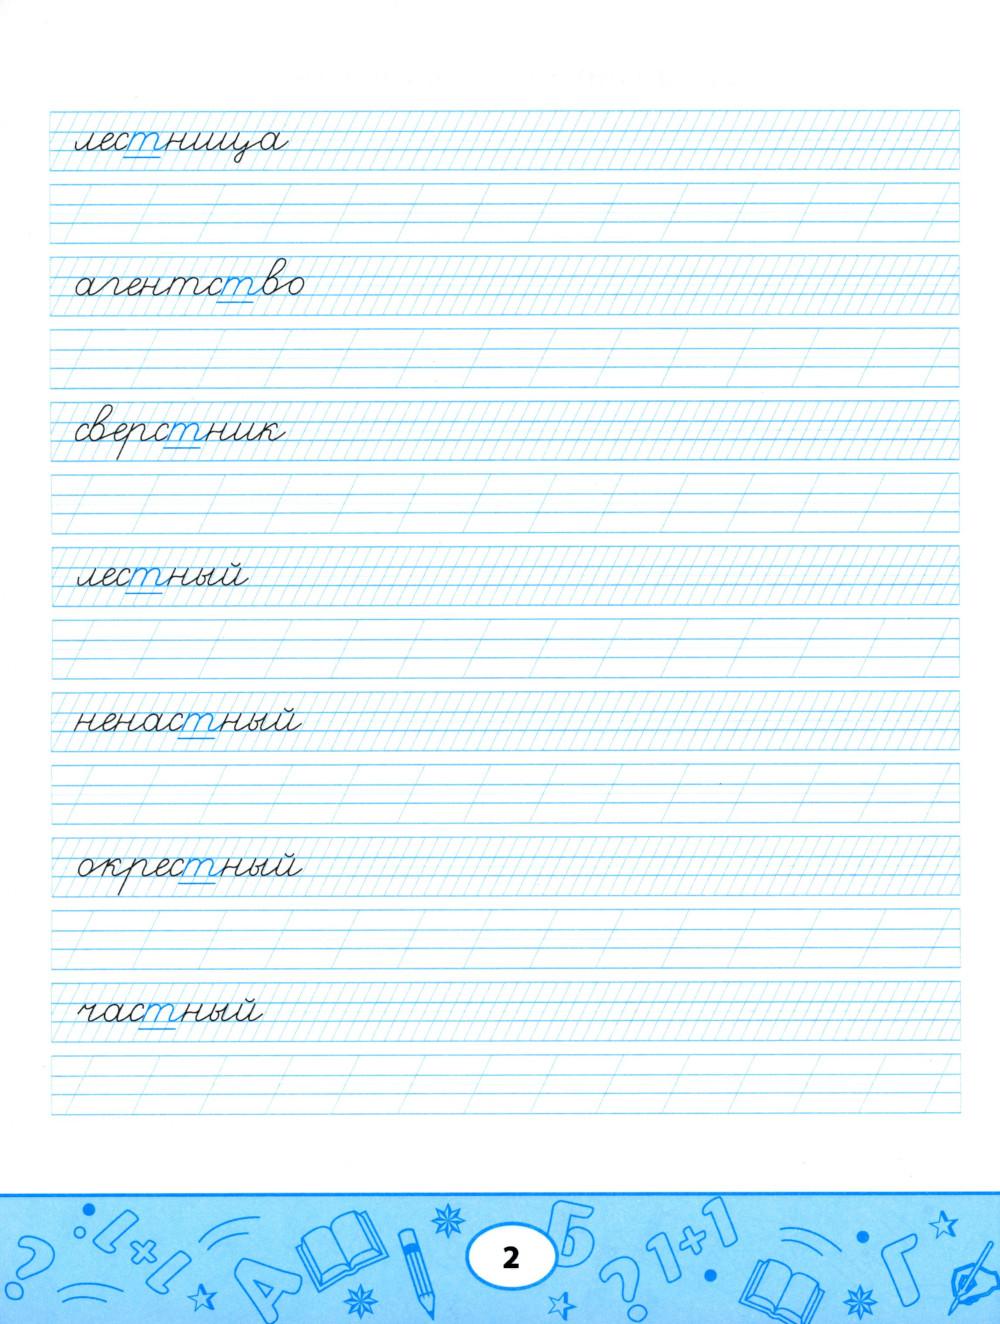 лестница
агентство
сверстник
лестный
ненастный
окрестный
частный
? 1+1 А 2 Б ? 1+1 Г